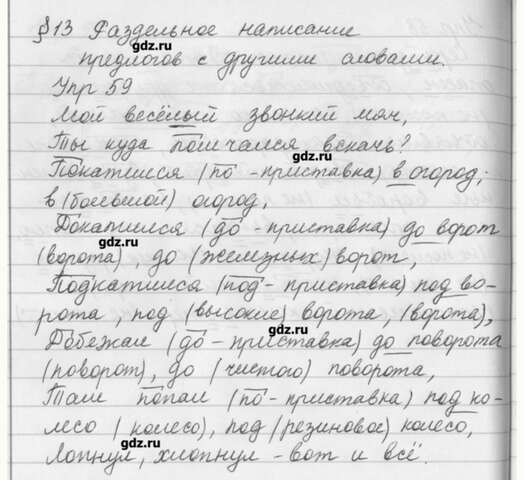 §13 Раздельное написание
gdz.ru
предлогов с другими словами.
Упр 59
gdz.ru
Мой весёлый звонкий мяч,
Ты куда помчался вскачь?
gdz.ru
Покатился (по - приставка) в огород,
в (большой) огород,
Докатился (до - приставка) до ворот
gdz.ru
(ворота), до (железных) ворот,
Подкатился (под - приставка) под во-
рота, под (высокие) ворота, (ворота),
gdz.ru
Добежал (до - приставка) до поворота
(поворот), до (чистого) поворота,
gdz.ru
Там попал (по - приставка) под ко-
лесо (колесо), под (резиновое) колесо,
gdz.ru
Лопнул, хлопнул - вот и всё.